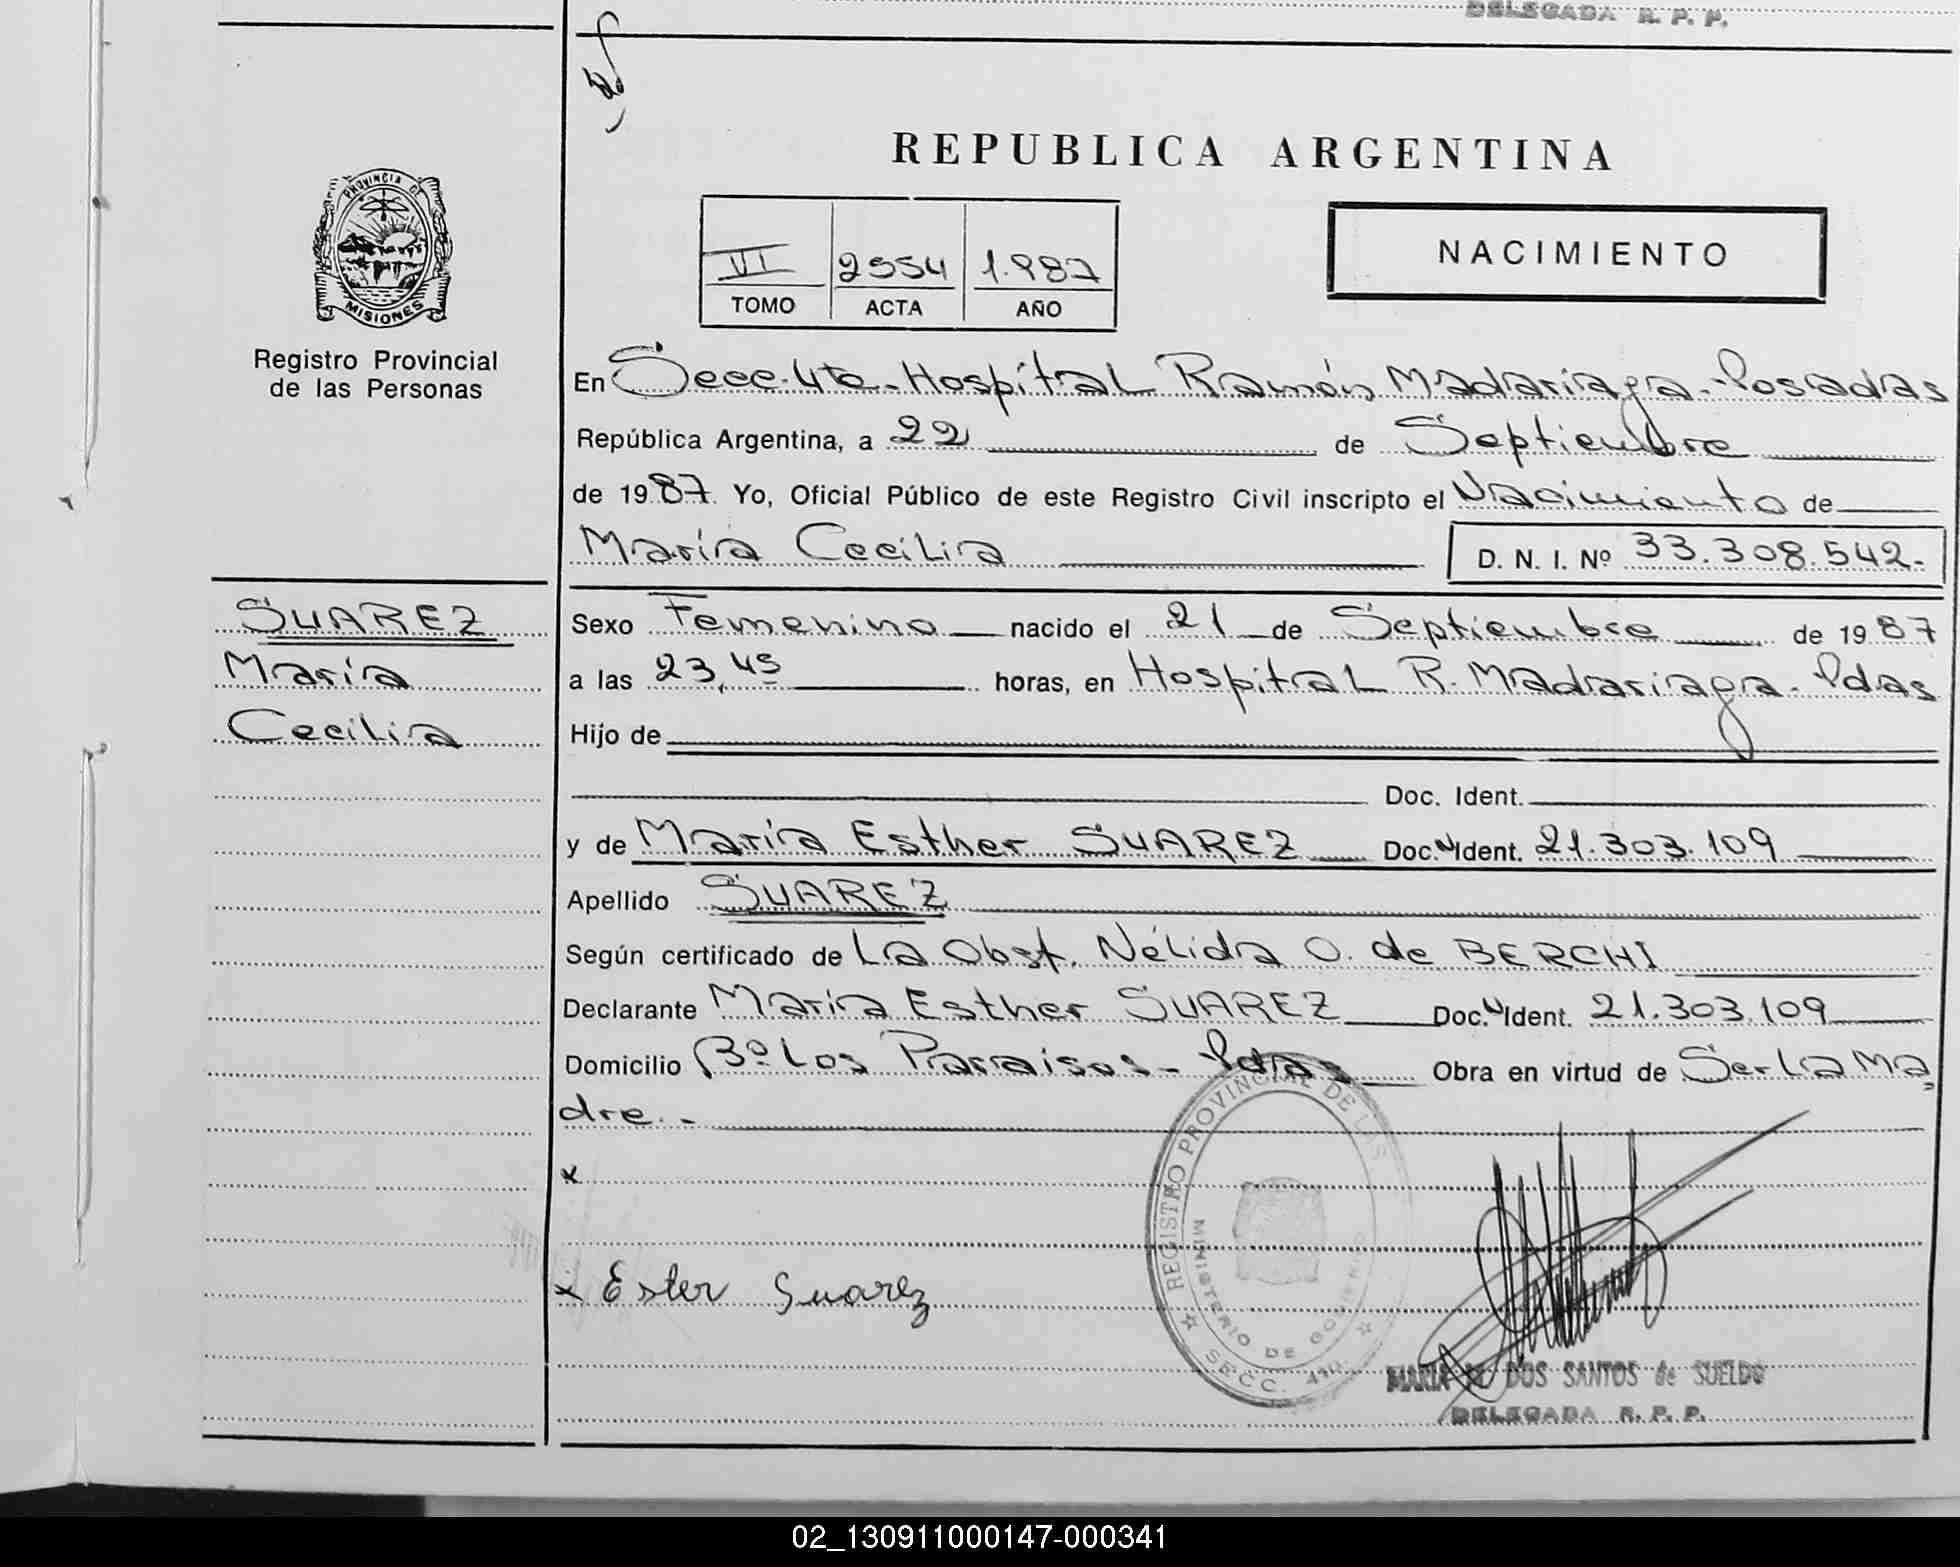 DELEGADA R. P. P.
REPUBLICA ARGENTINA
PROVINCIA DE
MISIONES
Registro Provincial
de las Personas
VI 2554 1.987
TOMO ACTA AÑO
NACIMIENTO
En Secc. 4ta. Hospital Ramón Madariaga - Posadas
República Argentina, a 22 de Septiembre
de 1987. Yo, Oficial Público de este Registro Civil inscripto el Nacimiento de
María Cecilia D. N. I. Nº 33.308.542.-
SUAREZ
María
Cecilia
Sexo Femenino nacido el 21 de Septiembre de 1987
a las 23,45 horas, en Hospital R. Madariaga - Pdas
Hijo de
Doc. Ident.
y de María Esther SUAREZ Doc. Ident. 21.303.109
Apellido SUAREZ
Según certificado de La Obst. Nélida O. de BERCHI
Declarante María Esther SUAREZ Doc. Ident. 21.303.109
Domicilio Bº Los Paraisos - Pdas Obra en virtud de Ser La Ma
dre.-
x
x Ester Suarez
REGISTRO PROVINCIAL DE LAS
MINISTERIO DE GOBIERNO
SECC. 4TA.
MARIA DOS SANTOS de SUELDO
DELEGADA R. P. P.
02_130911000147-000341